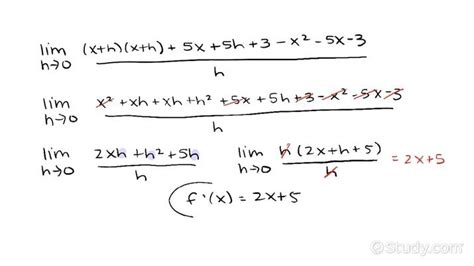 lim h→0 (x+h)(x+h) + 5x + 5h + 3 − x² − 5x − 3 / h
lim h→0 x² + xh + xh + h² + 5x + 5h + 3 − x² − 5x − 3 / h
lim h→0 2xh + h² + 5h / h lim h→0 h (2x + h + 5) / h = 2x+5
f'(x) = 2x + 5
Study.com